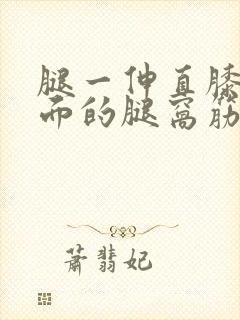 腿一伸直膝
而的腿窝筋
萧翡妃